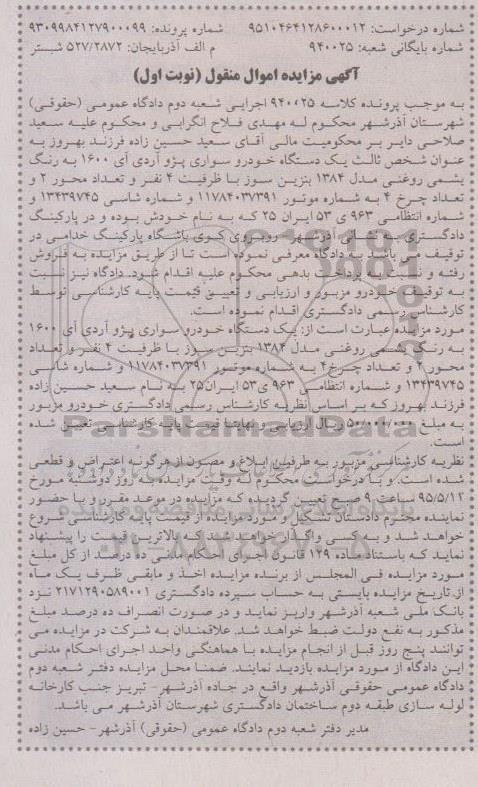 شماره درخواست: ۹۵۱۰۴۶۴۱۲۸۶۰۰۰۱۲ شماره پرونده: ۹۳۰۹۹۸۴۱۲۷۹۰۰۰۹۹
شماره بایگانی شعبه: ۹۴۰۰۲۵ م الف آذربایجان: ۵۲۷/۲۸۷۲ شبستر
آگهی مزایده اموال منقول (نوبت اول)
به موجب پرونده کلاسه ۹۴۰۰۲۵ اجرایی شعبه دوم دادگاه عمومی (حقوقی)
شهرستان آذرشهر محکوم له مهدی فلاح انگرابی و محکوم علیه سعید
صلاحی دایر بر محکومیت مالی آقای سعید حسین زاده فرزند بهروز به
عنوان شخص ثالث یک دستگاه خودرو سواری پژو آردی آی ۱۶۰۰ به رنگ
یشمی روغنی مدل ۱۳۸۴ بنزین سوز با ظرفیت ۴ نفر و تعداد محور ۲ و
تعداد چرخ ۴ به شماره موتور ۱۱۷۸۴۰۳۷۳۹۱ و شماره شاسی ۱۳۴۳۹۷۴۵ و
شماره انتظامی ۹۶۳ ی ۵۳ ایران ۲۵ که به نام خودش بوده و در پارکینگ
دادگستری به نشانی آذرشهر- روبروی کوی باشگاه پارکینگ خدامی در
توقیف می باشد به دادگاه معرفی نموده است تا از طریق مزایده به فروش
رفته و نسبت به پرداخت بدهی محکوم علیه اقدام شود. دادگاه نیز نسبت
به توقیف خودرو مزبور و ارزیابی و تعیین قیمت پایه کارشناسی توسط
کارشناس رسمی دادگستری اقدام نموده است.
مورد مزایده عبارت است از: یک دستگاه خودرو سواری پژو آردی آی ۱۶۰۰
به رنگ یشمی روغنی مدل ۱۳۸۴ بنزین سوز با ظرفیت ۴ نفر و تعداد
محور ۲ و تعداد چرخ ۴ به شماره موتور ۱۱۷۸۴۰۳۷۳۹۱ و شماره شاسی
۱۳۴۳۹۷۴۵ و شماره انتظامی ۹۶۳ ی ۵۳ ایران ۲۵ به نام سعید حسین زاده
فرزند بهروز که بر اساس نظریه کارشناس رسمی دادگستری خودرو مزبور
به مبلغ ۵۰/۰۰۰/۰۰۰ ریال ارزیابی و نهایتا قیمت پایه کارشناسی تعیین شده
است.
نظریه کارشناسی مزبور به طرفین ابلاغ و مصون از هرگونه اعتراض و قطعی
شده است. و با درخواست محکوم له وقت مزایده به روز دوشنبه مورخ
ساعت ۹ صبح تعیین گردید که مزایده در موعد مقرر و با حضور
نماینده محترم دادستان تشکیل و مورد مزایده از قیمت پایه کارشناسی شروع
خواهد شد و به کسی واگذار خواهد شد که بالاترین قیمت را پیشنهاد
نماید که باستناد ماده ۱۲۹ قانون اجرای احکام مدنی ده درصد از کل مبلغ
مورد مزایده فی المجلس از برنده مزایده اخذ و مابقی ظرف یک ماه
از تاریخ مزایده بایستی به حساب سپرده دادگستری ۲۱۷۱۲۹۰۵۸۹۰۰۱ نزد
بانک ملی شعبه آذرشهر واریز نماید و در صورت انصراف ده درصد مبلغ
مذکور به نفع دولت ضبط خواهد شد. علاقمندان به شرکت در مزایده می
توانند پنج روز قبل از انجام مزایده با هماهنگی واحد اجرای احکام مدنی
این دادگاه از مورد مزایده بازدید نمایند. ضمنا محل مزایده دفتر شعبه دوم
دادگاه عمومی حقوقی آذرشهر واقع در جاده آذرشهر- تبریز جنب کارخانه
لوله سازی طبقه دوم ساختمان دادگستری شهرستان آذرشهر می باشد.
مدیر دفتر شعبه دوم دادگاه عمومی (حقوقی) آذرشهر- حسین زاده
ParsNamadData
پایگاه اطلاع رسانی مناقصه و مزایده